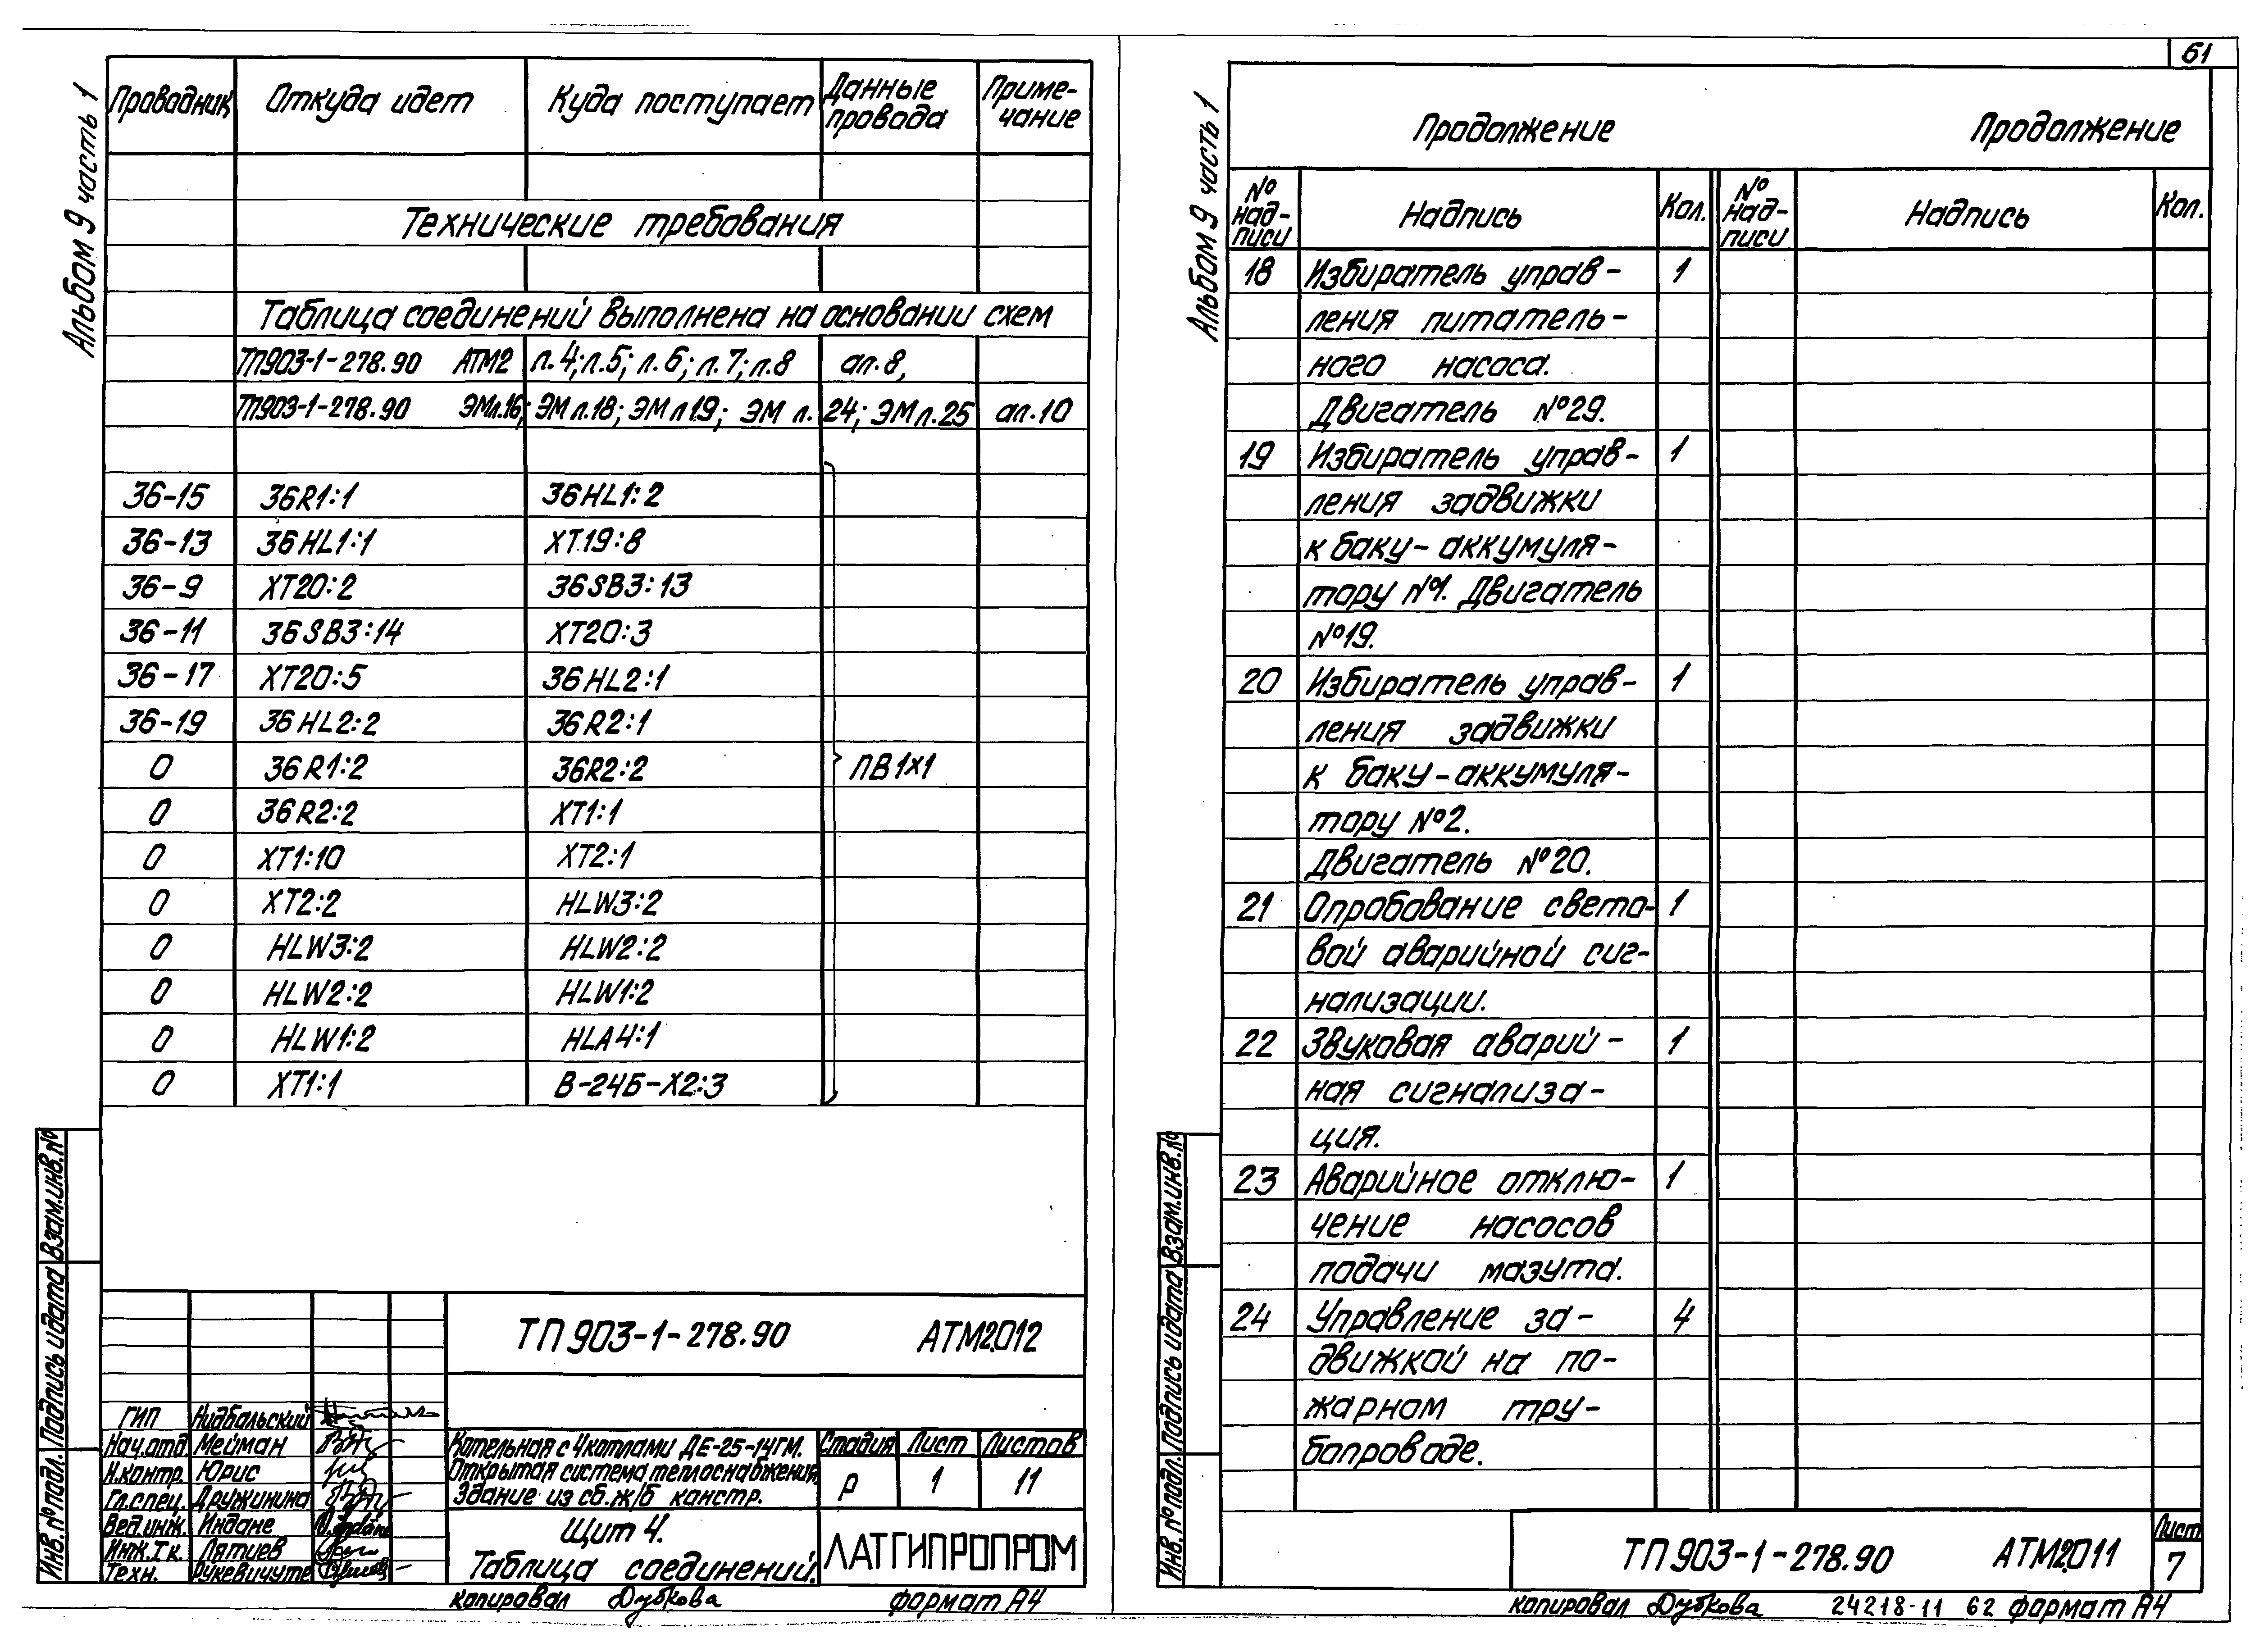 Альбом 9 часть 1
Проводник Откуда идет Куда поступает Данные провода Приме-чание
Технические требования
Таблица соединений выполнена на основании схем
ТП903-1-278.90 АТМ2 л.4; л.5; л.6; л.7; л.8 ал.8,
ТП903-1-278.90 ЭМл.16; ЭМ л.18; ЭМ л19; ЭМ л. 24; ЭМ л.25 ал.10
36-15 36R1:1 36HL1:2
36-13 36HL1:1 XT19:8
36-9 XT20:2 36SB3:13
36-11 36SB3:14 XT20:3
36-17 XT20:5 36HL2:1
36-19 36HL2:2 36R2:1
0 36R1:2 36R2:2 ПВ1х1
0 36R2:2 XT1:1
0 XT1:10 XT2:1
0 XT2:2 HLW3:2
0 HLW3:2 HLW2:2
0 HLW2:2 HLW1:2
0 HLW1:2 HLA4:1
0 XT1:1 В-24Б-Х2:3
Инв.№подл. Подпись и дата Взам.инв.№
ТП903-1-278.90 АТМ2.012
ГИП Нидбальский
Нач.отд Мейман
Н.контр. Юрис
Гл.спец. Дружинина
Вед.инж. Индане
Инж.Iк. Лятиев
Техн. Рукевичуте
Котельная с 4 котлами ДЕ-25-14ГМ.
Открытая система теплоснабжения.
Здание из сб.ж/б констр.
Стадия Лист Листов
Р 1 11
Щит 4.
Таблица соединений.
ЛАТГИПРОПРОМ
копировал Дубкова формат А4
61
Альбом 9 часть 1
Продолжение Продолжение
№ над-писи Надпись Кол. № над-писи Надпись Кол.
18 Избиратель управ- 1
ления питатель-
ного насоса.
Двигатель №29.
19 Избиратель управ- 1
ления задвижки
к баку-аккумуля-
тору №1. Двигатель
№19.
20 Избиратель управ- 1
ления задвижки
к баку-аккумуля-
тору №2.
Двигатель №20.
21 Опробование свето- 1
вой аварийной сиг-
нализации.
22 Звуковая аварий- 1
ная сигнализа-
ция.
23 Аварийное отклю- 1
чение насосов
подачи мазута.
24 Управление за- 4
движкой на по-
жарном тру-
бопроводе.
Инв.№подл. Подпись и дата Взам.инв.№
ТП903-1-278.90 АТМ2.011
Лист
7
копировал Дубкова 24218-11 62 формат А4